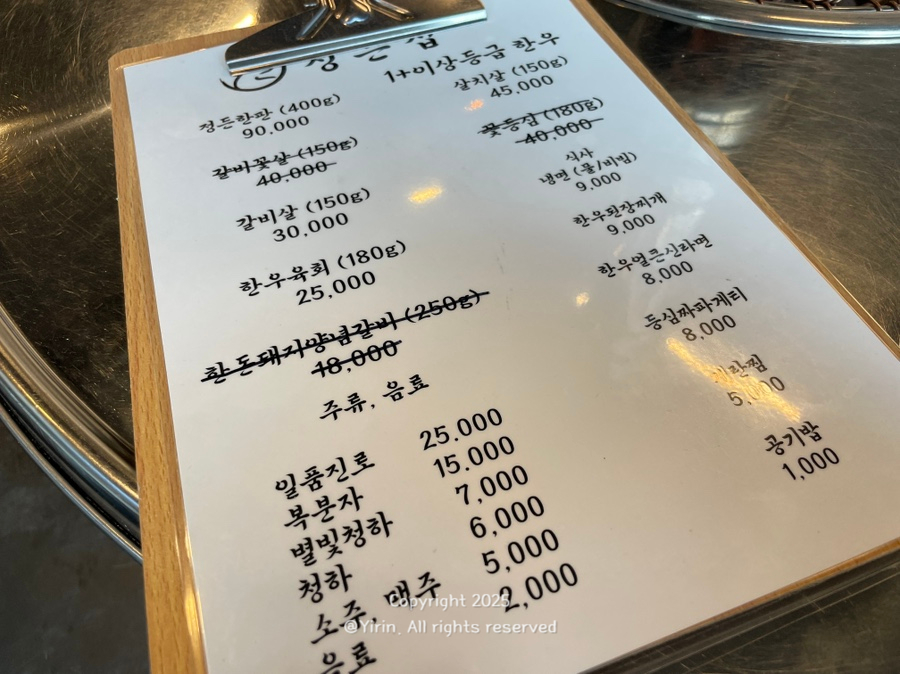 정든집
1+이상등급 한우
정든한판 (400g)
90.000
갈비꽃살 (150g)
40,000
갈비살 (150g)
30.000
한우육회 (180g)
25,000
한돈돼지양념갈비 (250g)
18,000
주류, 음료
일품진로 25.000
복분자 15.000
별빛청하 7,000
청하 6,000
소주, 맥주 5,000
음료 2,000
살치살 (150g)
45.000
꽃등심 (180g)
40,000
식사
냉면(물/비빔)
9.000
한우된장찌개
9,000
한우얼큰신라면
8,000
등심짜파게티
8,000
계란찜
5,000
공기밥
1,000
Copyright 2025
@Yirin. All rights reserved